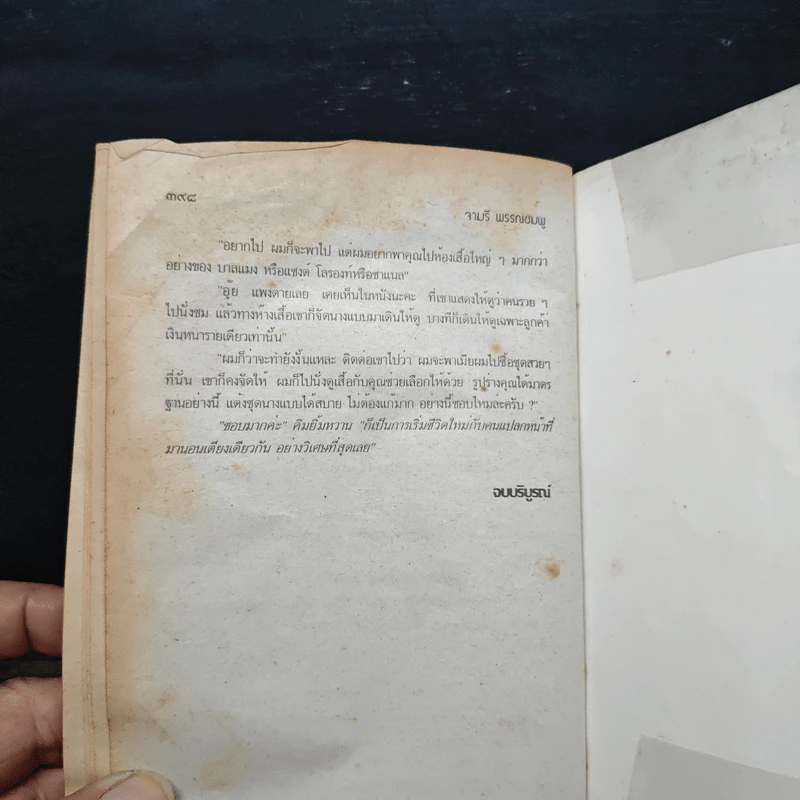 ๓๙๘
จามรี พรรณชมพู
"อยากไป ผมก็จะพาไป แต่ผมอยากพาคุณไปห้องเสื้อใหญ่ ๆ มากกว่า
อย่างของ บาลแมง หรือแซงต์ โลรองท์หรือชาแนล"
"อุ๊ย แพงตายเลย เคยเห็นในหนังนะคะ ที่เขาแสดงให้ดูว่าคนรวย ๆ
ไปนั่งชม แล้วทางห้างเสื้อเขาก็จัดนางแบบมาเดินให้ดู บางทีก็เดินให้ดูเฉพาะลูกค้า
เงินหนารายเดียวเท่านั้น"
"ผมก็ว่าจะทำยังงั้นแหละ ติดต่อเขาไปว่า ผมจะพาเมียผมไปซื้อชุดสวยๆ
ที่นั่น เขาก็คงจัดให้ ผมก็ไปนั่งดูเสื้อกับคุณช่วยเลือกให้ด้วย รูปร่างคุณได้มาตร
ฐานอย่างนี้ แต่งชุดนางแบบได้สบาย ไม่ต้องแก้มาก อย่างนี้ชอบไหมล่ะครับ ?"
"ชอบมากค่ะ" คิมยิ้มหวาน "ก็เป็นการเริ่มชีวิตใหม่กับคนแปลกหน้าที่
มานอนเตียงเดียวกัน อย่างวิเศษที่สุดเลย"
จบบริบูรณ์